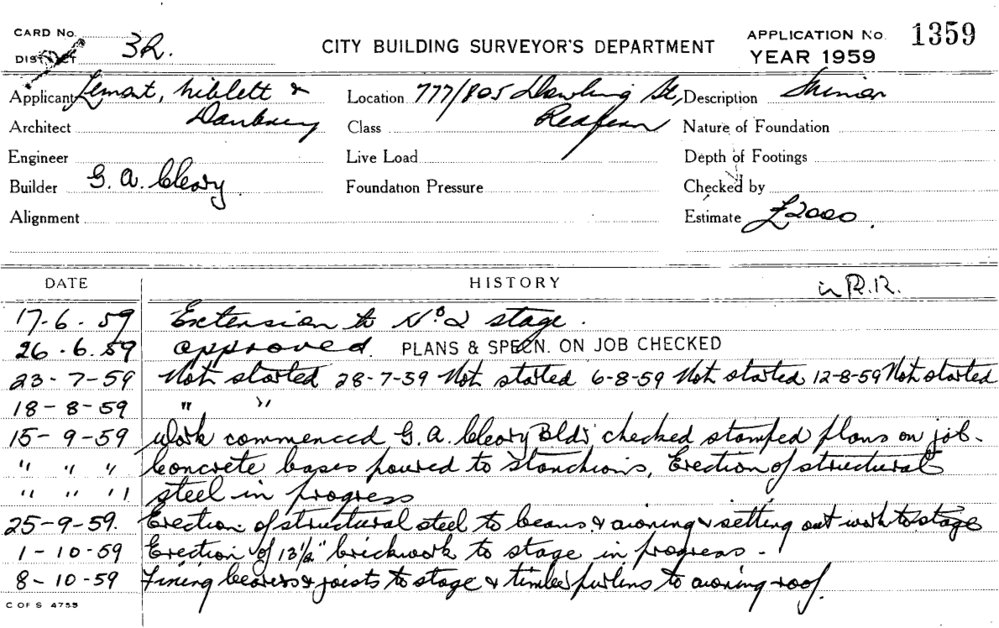 CARD No.
DISTRICT 3R.
CITY BUILDING SURVEYOR'S DEPARTMENT
APPLICATION No. 1359
YEAR 1959
Applicant Niblett &
Location 777/805 Dowling St, Redfern
Description
Architect
Class
Nature of Foundation
Engineer
Live Load
Depth of Footings
Builder G. A. Cleary
Foundation Pressure
Checked by
Alignment
Estimate £2000.
DATE HISTORY in R.R.
17-6-59 Extension to No 2 stage.
26-6-59 approved. PLANS & SPECN. ON JOB CHECKED
23-7-59 Not started 28-7-59 Not started 6-8-59 Not started 12-8-59 Not started
18-8-59 " "
15-9-59 Work commenced G. A. Cleary Bldr checked stamped plans on job-
" " " Concrete bases poured to stanchions, Erection of structural
" " " steel in progress
25-9-59. Erection of structural steel to beams & awning & setting out work to stage
1-10-59 Erection of 13½" brickwork to stage in progress-
8-10-59 Fixing bearers & joists to stage & timber purlins to awning roof.
C OF S 4755